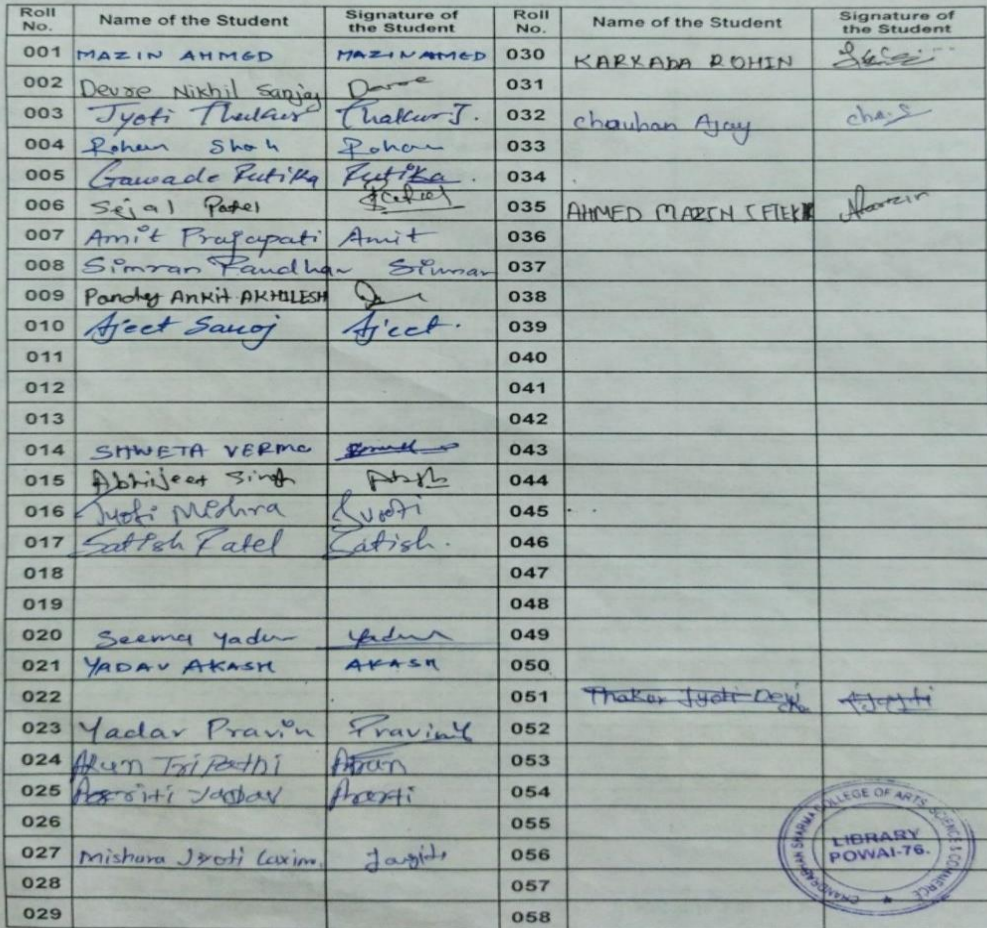 Roll No. Name of the Student Signature of the Student Roll No. Name of the Student Signature of the Student
001 MAZIN AHMED MAZIN AMED 030 KARKADA ROHIN
002 Devre Nikhil Sanjay 031
003 Jyoti Thakur Thakur J. 032 Chauhan Ajay
004 Rohan Shah Rohan 033
005 Gawade Rutika Rutika 034
006 Sejal Patel 035 AHMED MAZIN
007 Amit Prajapati Amit 036
008 Simran Simran 037
009 Pandey ANKIT AKHILESH 038
010 Ajeet Saroj Ajeet. 039
011 040
012 041
013 042
014 SHWETA VERMA 043
015 Abhijeet Singh 044
016 Jyoti Mishra Jyoti 045
017 Satish Patel Satish. 046
018 047
019 048
020 Seema Yadav Yadav 049
021 YADAV AKASH AKASH 050
022 051 Thakor Jyoti
023 Yadav Pravin Pravin Y 052
024 Arun Tripathi Arun 053
025 Yadav 054
026 055
027 Mishra Jyoti Laxim. 056
028 057
029 058
CHANDRABHAN SHARMA COLLEGE OF ARTS, SCIENCE & COMMERCE
LIBRARY
POWAI-76.